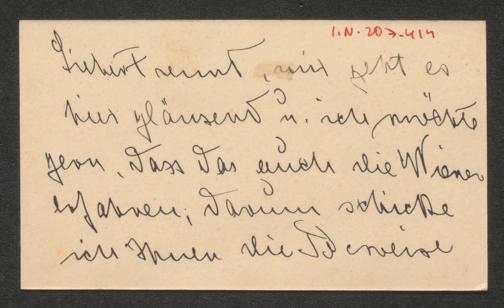 I.N. 207.414
Liebst, mir geht es
hier glänzend u. ich möchte
gern, dass das auch die Wiener
erfahren; darum schicke
ich Ihnen die Beweise